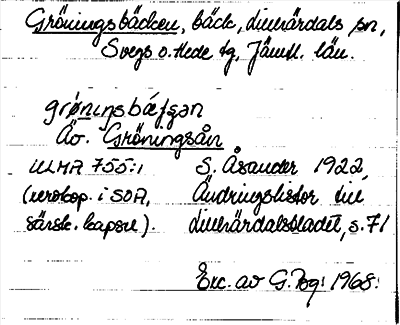 Gröningsbäcken, bäck, Lillhärdals sn,
Svegs o. Hede tg, Jämtl. län.
grøningsbæʃʃən
Äv. Gröningsån
ULMA 755:1 S. Åsander 1922,
(xerokop. i SOA, Ändringslistor till
särsk. kapsel). Lillhärdalsbladet, s. 71
Exc. av G. 1968.